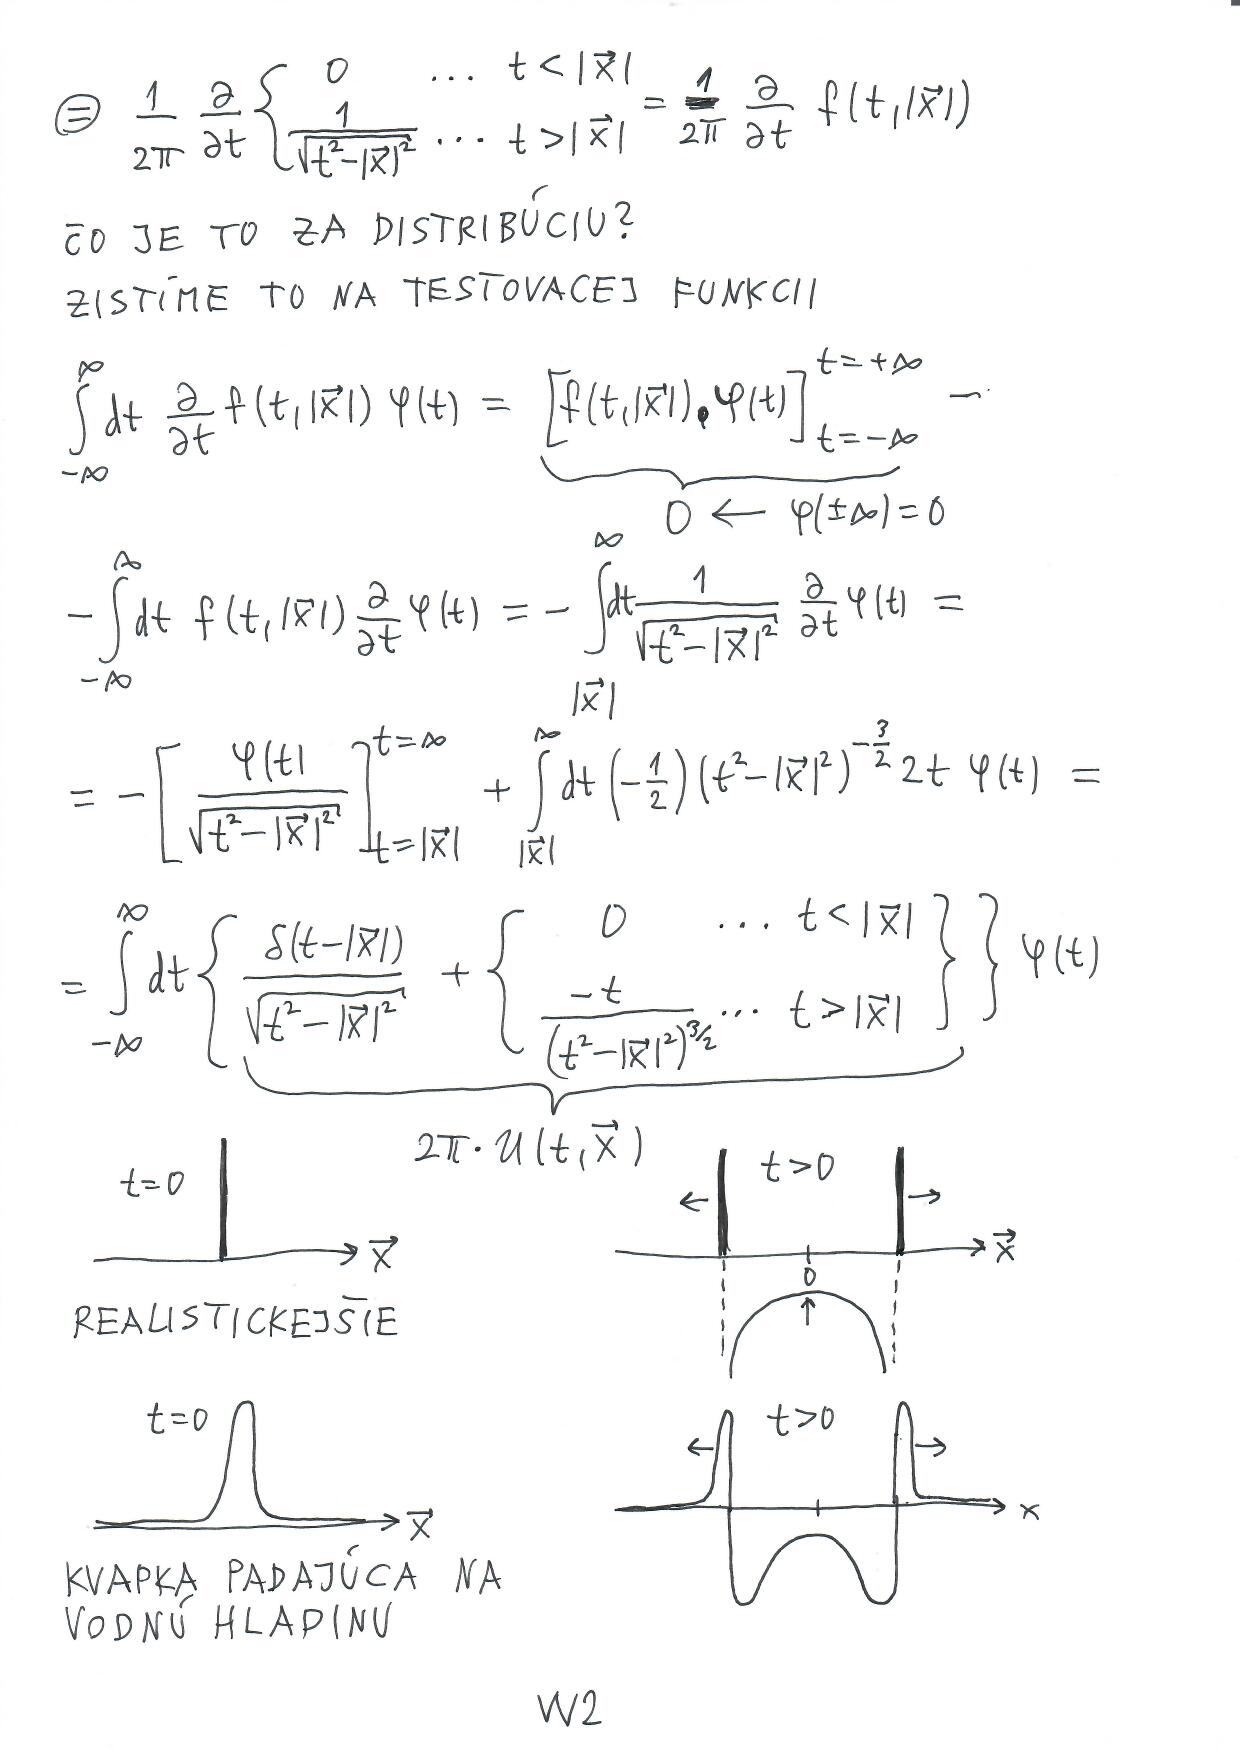 ⊜ 1/2π ∂/∂t { 0 ... t < |x⃗| ; 1/√(t²−|x⃗|²) ... t > |x⃗| = 1/2π ∂/∂t f(t,|x⃗|)
ČO JE TO ZA DISTRIBÚCIU?
ZISTÍME TO NA TESTOVACEJ FUNKCII
∫_{−∞}^{∞} dt ∂/∂t f(t,|x⃗|) φ(t) = [f(t,|x⃗|).φ(t)]_{t=−∞}^{t=+∞} −
0 ← φ(±∞)=0
− ∫_{−∞}^{∞} dt f(t,|x⃗|) ∂/∂t φ(t) = − ∫_{|x⃗|}^{∞} dt 1/√(t²−|x⃗|²) ∂/∂t φ(t) =
= − [φ(t)/√(t²−|x⃗|²)]_{t=|x⃗|}^{t=∞} + ∫_{|x⃗|}^{∞} dt (−1/2) (t²−|x⃗|²)^{−3/2} 2t φ(t) =
= ∫_{−∞}^{∞} dt { δ(t−|x⃗|)/√(t²−|x⃗|²) + { 0 ... t < |x⃗| ; −t/(t²−|x⃗|²)^{3/2} ... t > |x⃗| } } φ(t)
2π·U(t,x⃗)
t=0
x⃗
t>0
x⃗
0
REALISTICKEJŠIE
t=0
x⃗
t>0
x
KVAPKA PADAJÚCA NA
VODNÚ HLADINU
W2